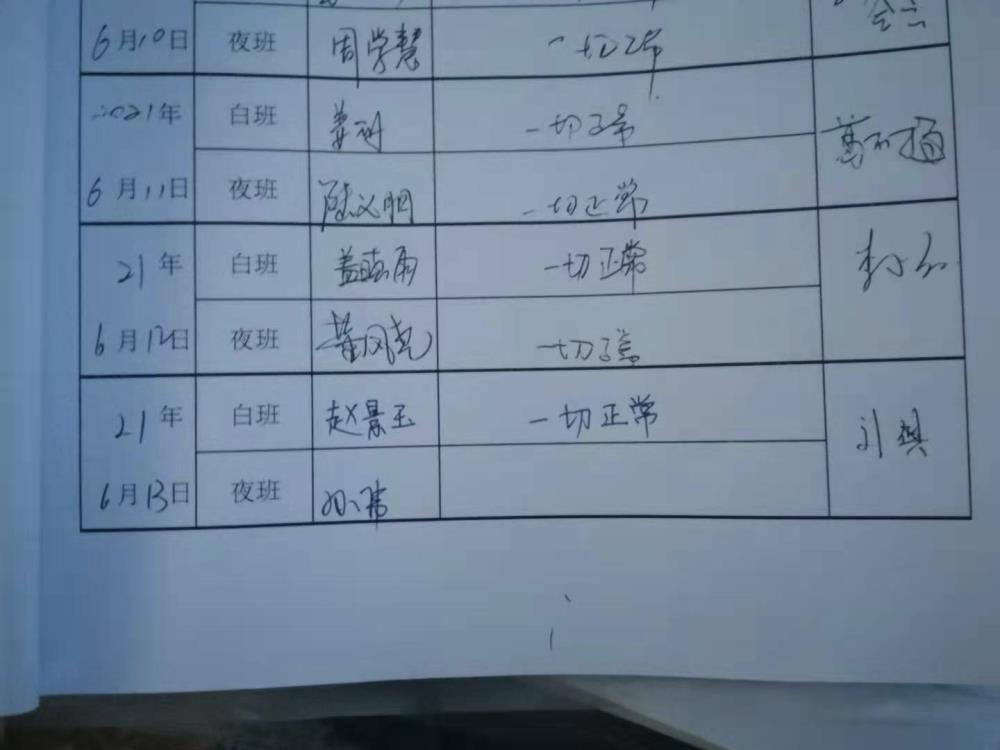 6月10日 夜班 周学慧 一切正常
2021年 白班 姜 一切正常
6月11日 夜班 陆义明 一切正常
21年 白班 盖 雨 一切正常
6月12日 夜班 董风亮 一切正常
21年 白班 赵景玉 一切正常
6月13日 夜班 孙